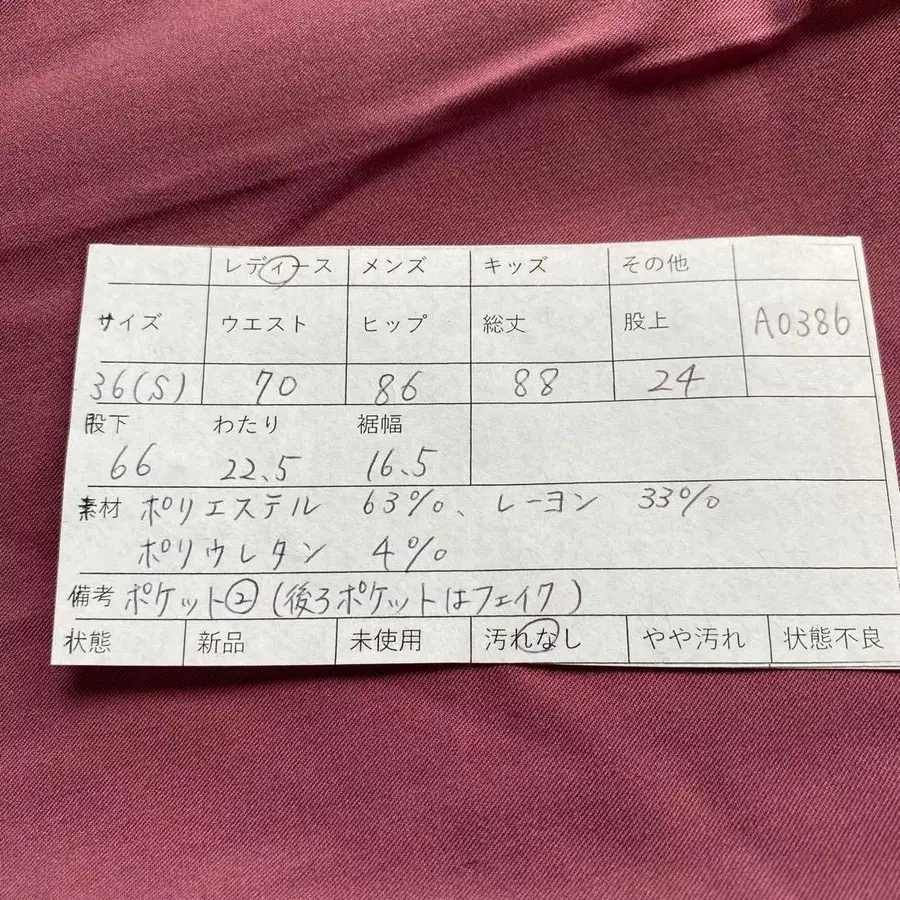 レディース メンズ キッズ その他
サイズ ウエスト ヒップ 総丈 股上 A0386
36(S) 70 86 88 24
股下 わたり 裾幅
66 22.5 16.5
素材 ポリエステル 63%、レーヨン 33%
ポリウレタン 4%
備考 ポケット② (後ろポケットはフェイク)
状態 新品 未使用 汚れなし やや汚れ 状態不良